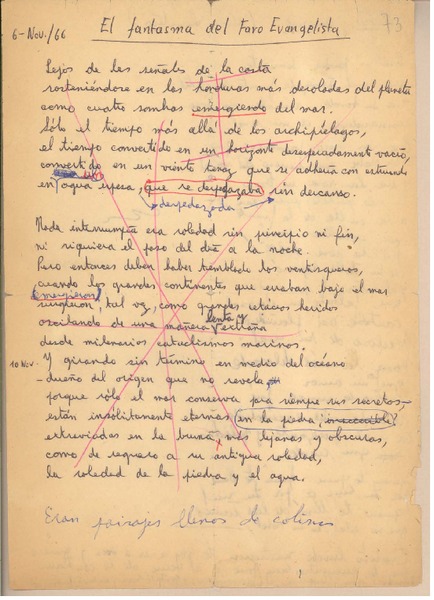 6-Nov./66 El fantasma del Faro Evangelista 73
Lejos de las señales de la costa
sosteniéndose en las honduras más desoladas del planeta
como cuatro sombras emergiendo del mar.
Sólo el tiempo más allá de los archipiélagos,
el tiempo convertido en un horizonte desesperadamente vacío,
convertido en un viento tenaz que se adhería con
en agua espesa, que se despedazaba sin descanso.
despedazada
Nada interrumpía esa soledad sin principio ni fin,
ni siquiera el paso del día a la noche.
Pero entonces deben haber temblado los ventisqueros,
cuando los grandes continentes que erraban bajo el mar
emergieron
surgieron, tal vez, como grandes cetáceos heridos
lenta y
oscilando de una manera extraña
desde milenarios cataclismos marinos.
10 Nov. Y girando sin término en medio del océano
– dueño del origen que no revela
porque sólo el mar conserva para siempre sus secretos –
están insólitamente eternas en la piedra,
extraviadas en la bruma más lejanas y obscuras,
como de regreso a su antigua soledad,
la soledad de la piedra y el agua.
Eran paisajes llenos de colinas